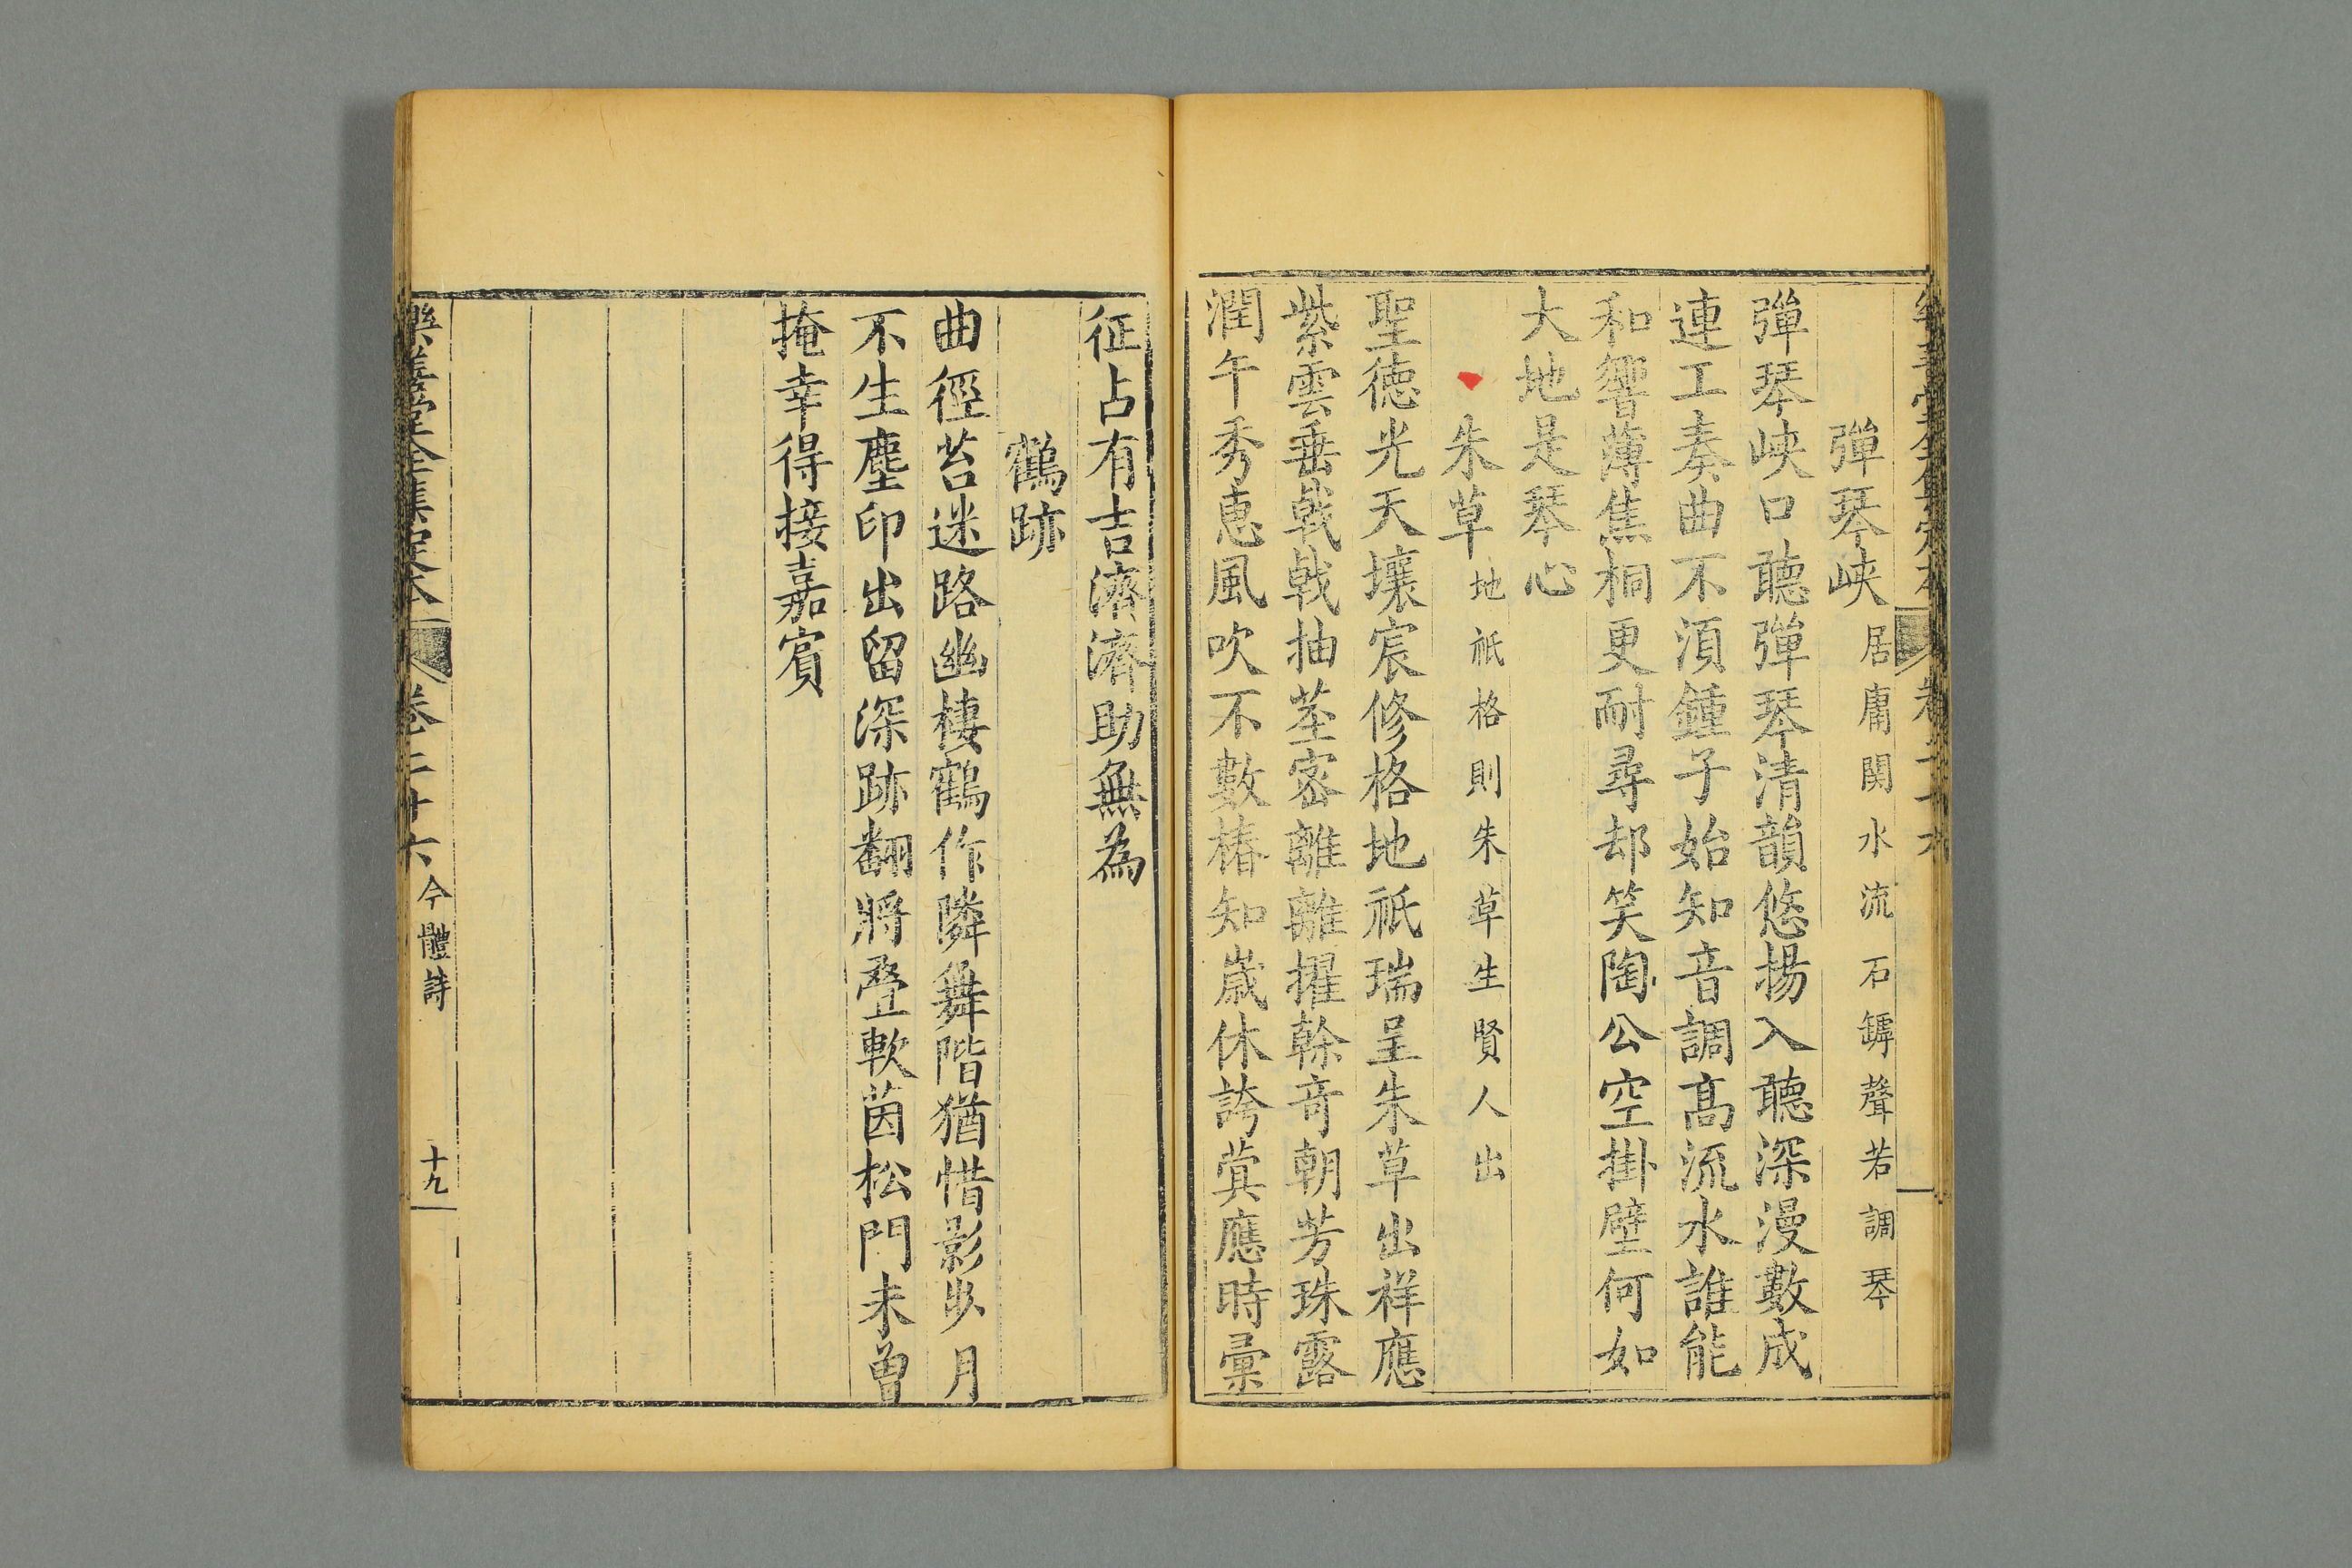 彈琴峽居庸関水流石罅聲若調琴
彈琴峽口聽彈琴清韻悠揚入聽深漫數成
連工奏曲不湏鍾子始知音調髙流水誰能
和響薄焦桐更耐尋却笑陶公空掛壁何如
大地是琴心
朱草地祇格則朱草生賢人出
聖徳光天壤宸修格地祇瑞呈朱草出祥應
紫雲垂戟戟抽莖宻離離擢幹竒朝芳珠露
潤午秀惠風吹不數椿知嵗休誇蓂應時彚
征占有吉濟濟助無為
鶴跡
曲徑苔迷路幽棲鶴作隣舞階猶惜影步月
不生塵印出留深跡翻將叠軟茵松門未曾
掩幸得接嘉賓
樂善堂全集定本 卷二十六 今體詩 十九